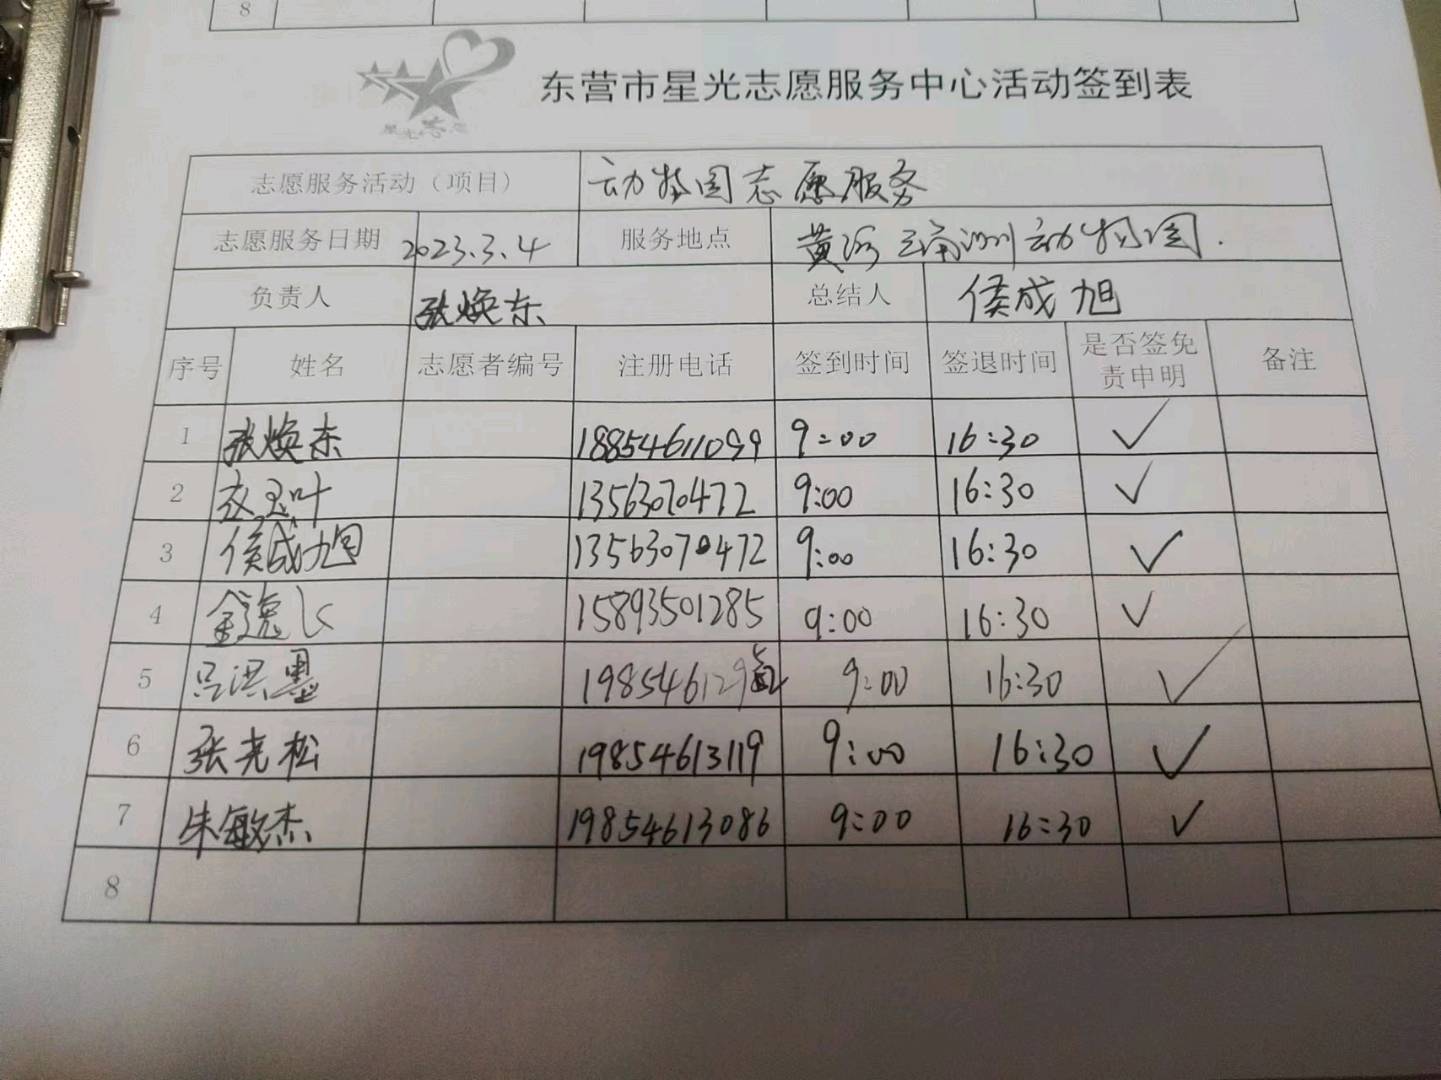 8
东营市星光志愿服务中心活动签到表
志愿服务活动（项目） 动物园志愿服务
志愿服务日期 2023.3.4 服务地点 黄河三角洲动物园.
负责人 张焕东 总结人 侯成旭
序号 姓名 志愿者编号 注册电话 签到时间 签退时间 是否签免责申明 备注
1 张焕东 18854611099 9:00 16:30 ✓
2 玉叶 13563070472 9:00 16:30 ✓
3 侯成旭 13563070472 9:00 16:30 ✓
4 金逸飞 15893501285 9:00 16:30 ✓
5 吕洪墨 9:00 16:30 ✓
6 张尧松 19854613119 9:00 16:30 ✓
7 朱敏杰 19854613086 9:00 16:30 ✓
8